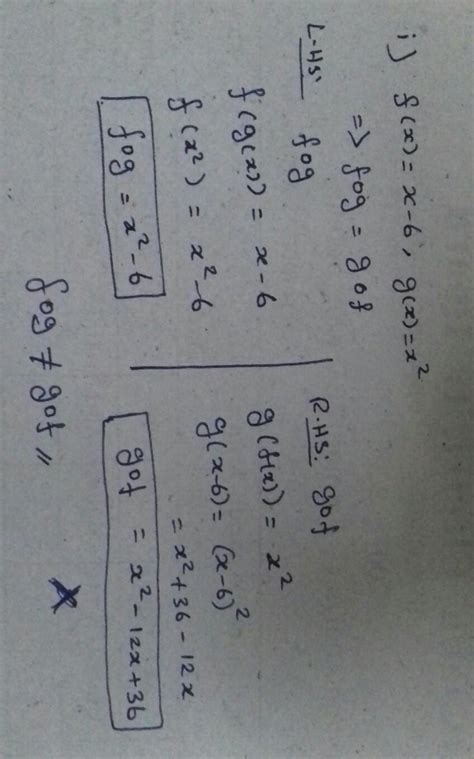 i) f(x) = x-6, g(x) = x²
=> fog = gof
L.HS: fog
f(g(x)) = x-6
f(x²) = x²-6
fog = x²-6
R.HS: gof
g(f(x)) = x²
g(x-6) = (x-6)²
= x²+36-12x
gof = x²-12x+36
fog ≠ gof //